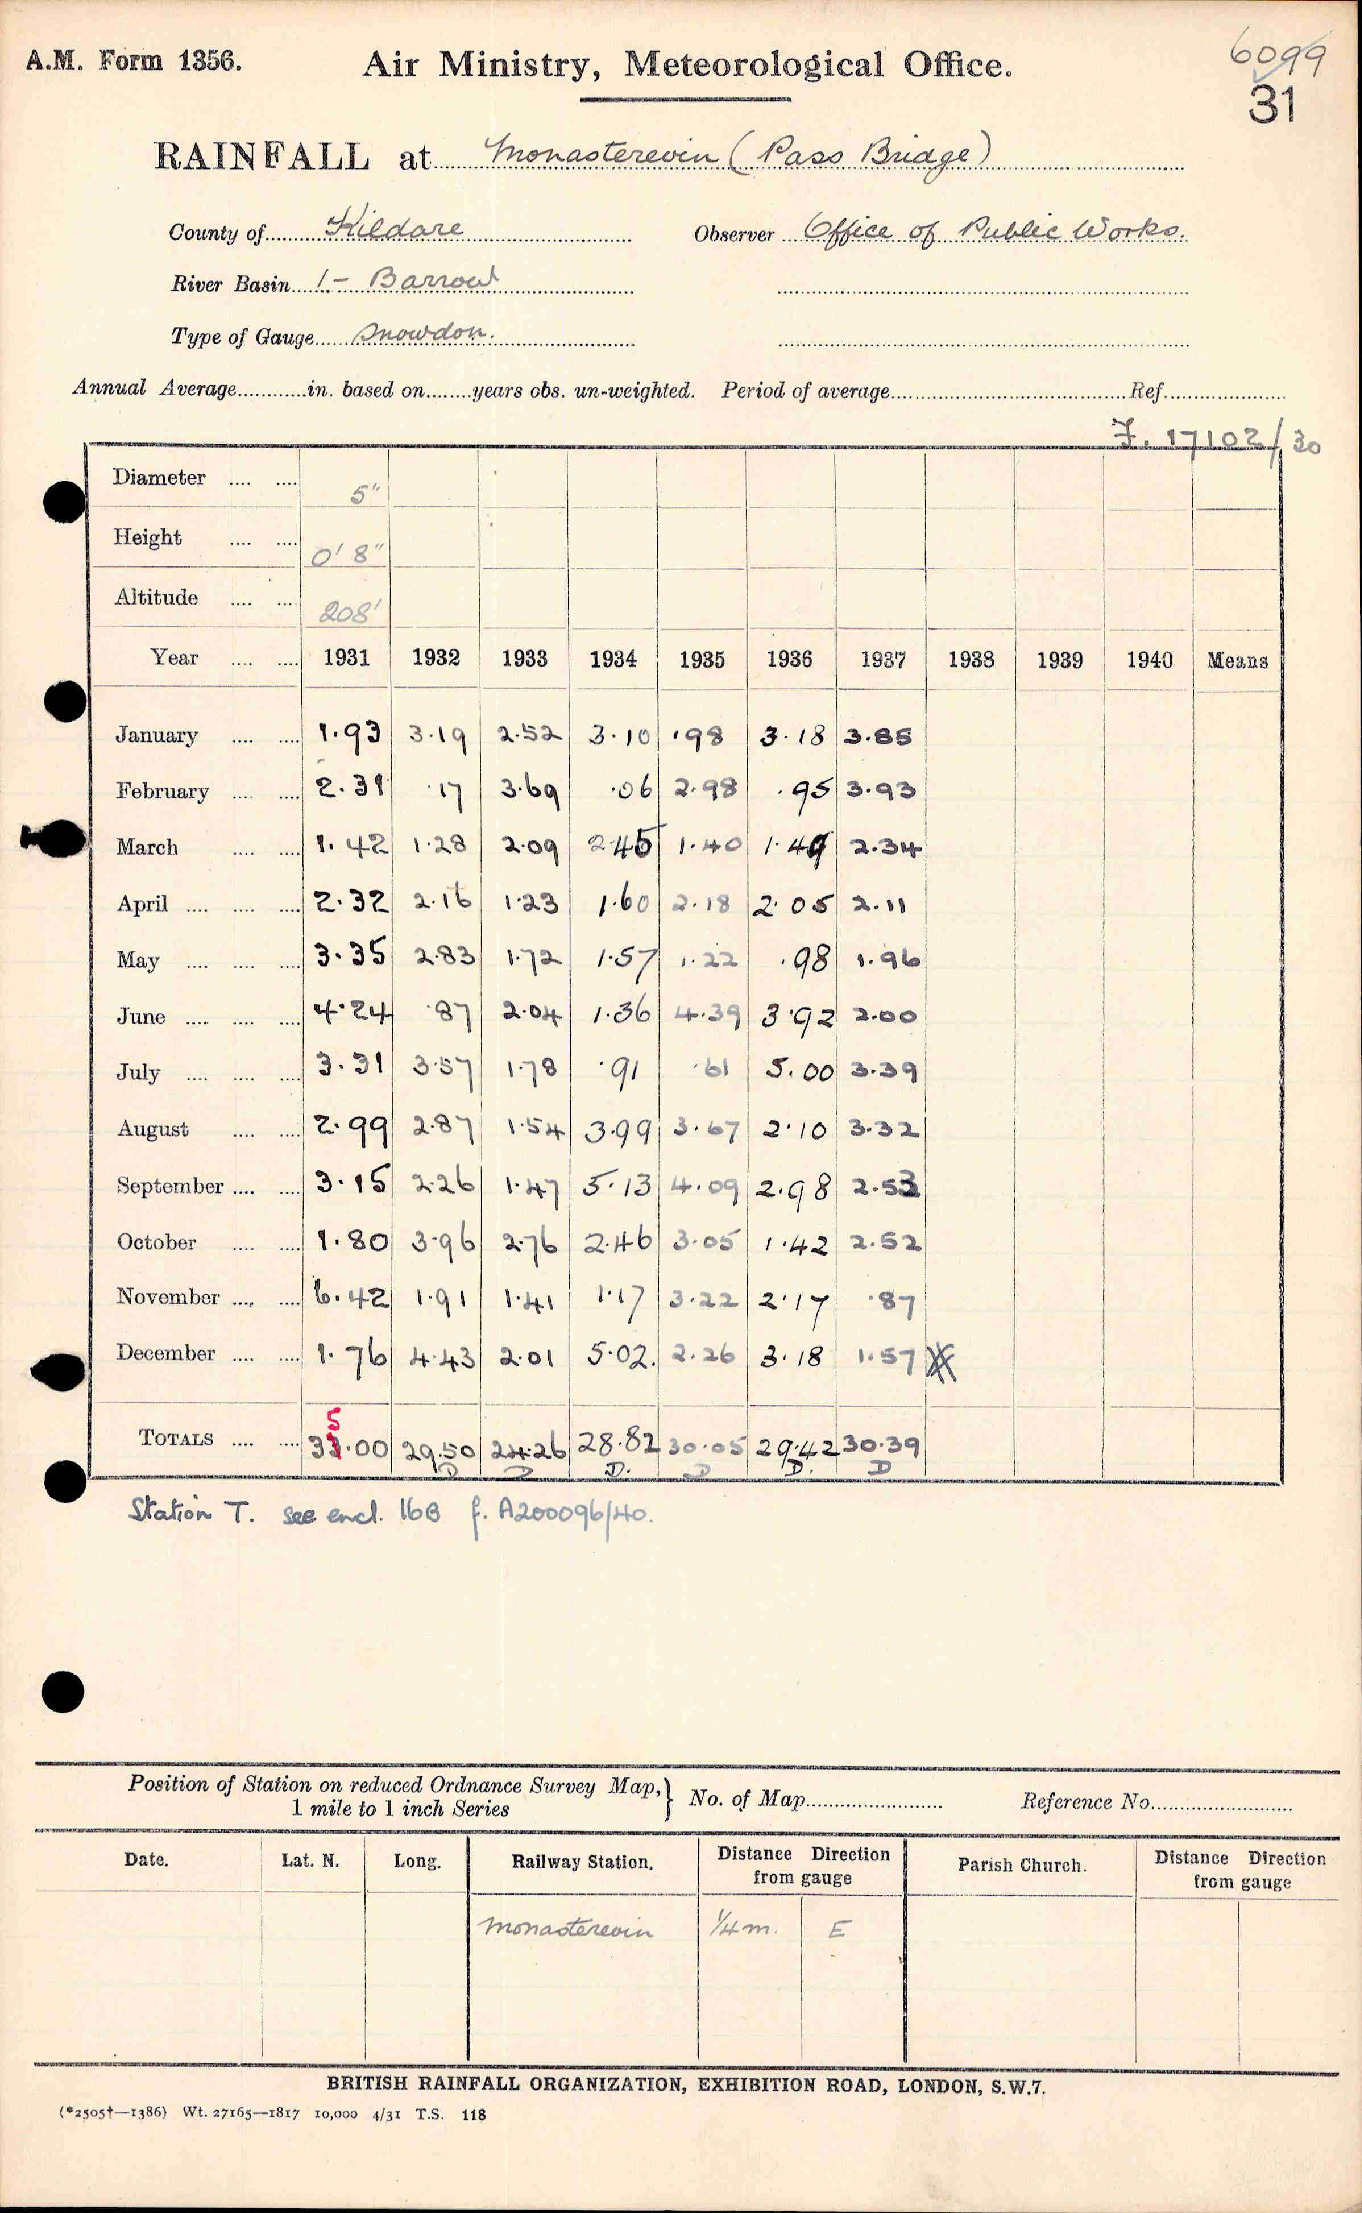 A.M. Form 1356. Air Ministry, Meteorological Office. 6099
31
RAINFALL at Monasterevin (Pass Bridge)
County of Kildare Observer Office of Public Works.
River Basin 1- Barrow
Type of Gauge Snowdon.
Annual Average in. based on years obs. un-weighted. Period of average Ref.
F. 17102/30
Diameter 5"
Height 0' 8"
Altitude 208'
Year 1931 1932 1933 1934 1935 1936 1937 1938 1939 1940 Means
January 1.93 3.19 2.52 3.10 .98 3.18 3.85
February 2.31 .17 3.69 .06 2.98 .95 3.93
March 1.42 1.28 2.09 2.45 1.40 1.49 2.34
April 2.32 2.16 1.23 1.60 2.18 2.05 2.11
May 3.35 2.83 1.72 1.57 1.22 .98 1.96
June 4.24 .87 2.04 1.36 4.39 3.92 2.00
July 3.31 3.57 1.78 .91 .61 5.00 3.39
August 2.99 2.87 1.54 3.99 3.67 2.10 3.32
September 3.15 2.26 1.47 5.13 4.09 2.98 2.53
October 1.80 3.96 2.76 2.46 3.05 1.42 2.52
November 6.42 1.91 1.41 1.17 3.22 2.17 .87
December 1.76 4.43 2.01 5.02. 2.26 3.18 1.57
TOTALS 35.00 29.50 24.26 28.82 30.05 29.42 30.39
D D D. D D. D
Station T. see encl. 16B f. A200096/40.
Position of Station on reduced Ordnance Survey Map, 1 mile to 1 inch Series } No. of Map Reference No.
Date. Lat. N. Long. Railway Station. Distance Direction from gauge Parish Church. Distance Direction from gauge
Monasterevin 1/4 m. E
BRITISH RAINFALL ORGANIZATION, EXHIBITION ROAD, LONDON, S.W.7.
(*2505†—1386) Wt. 27165—1817 10,000 4/31 T.S. 118